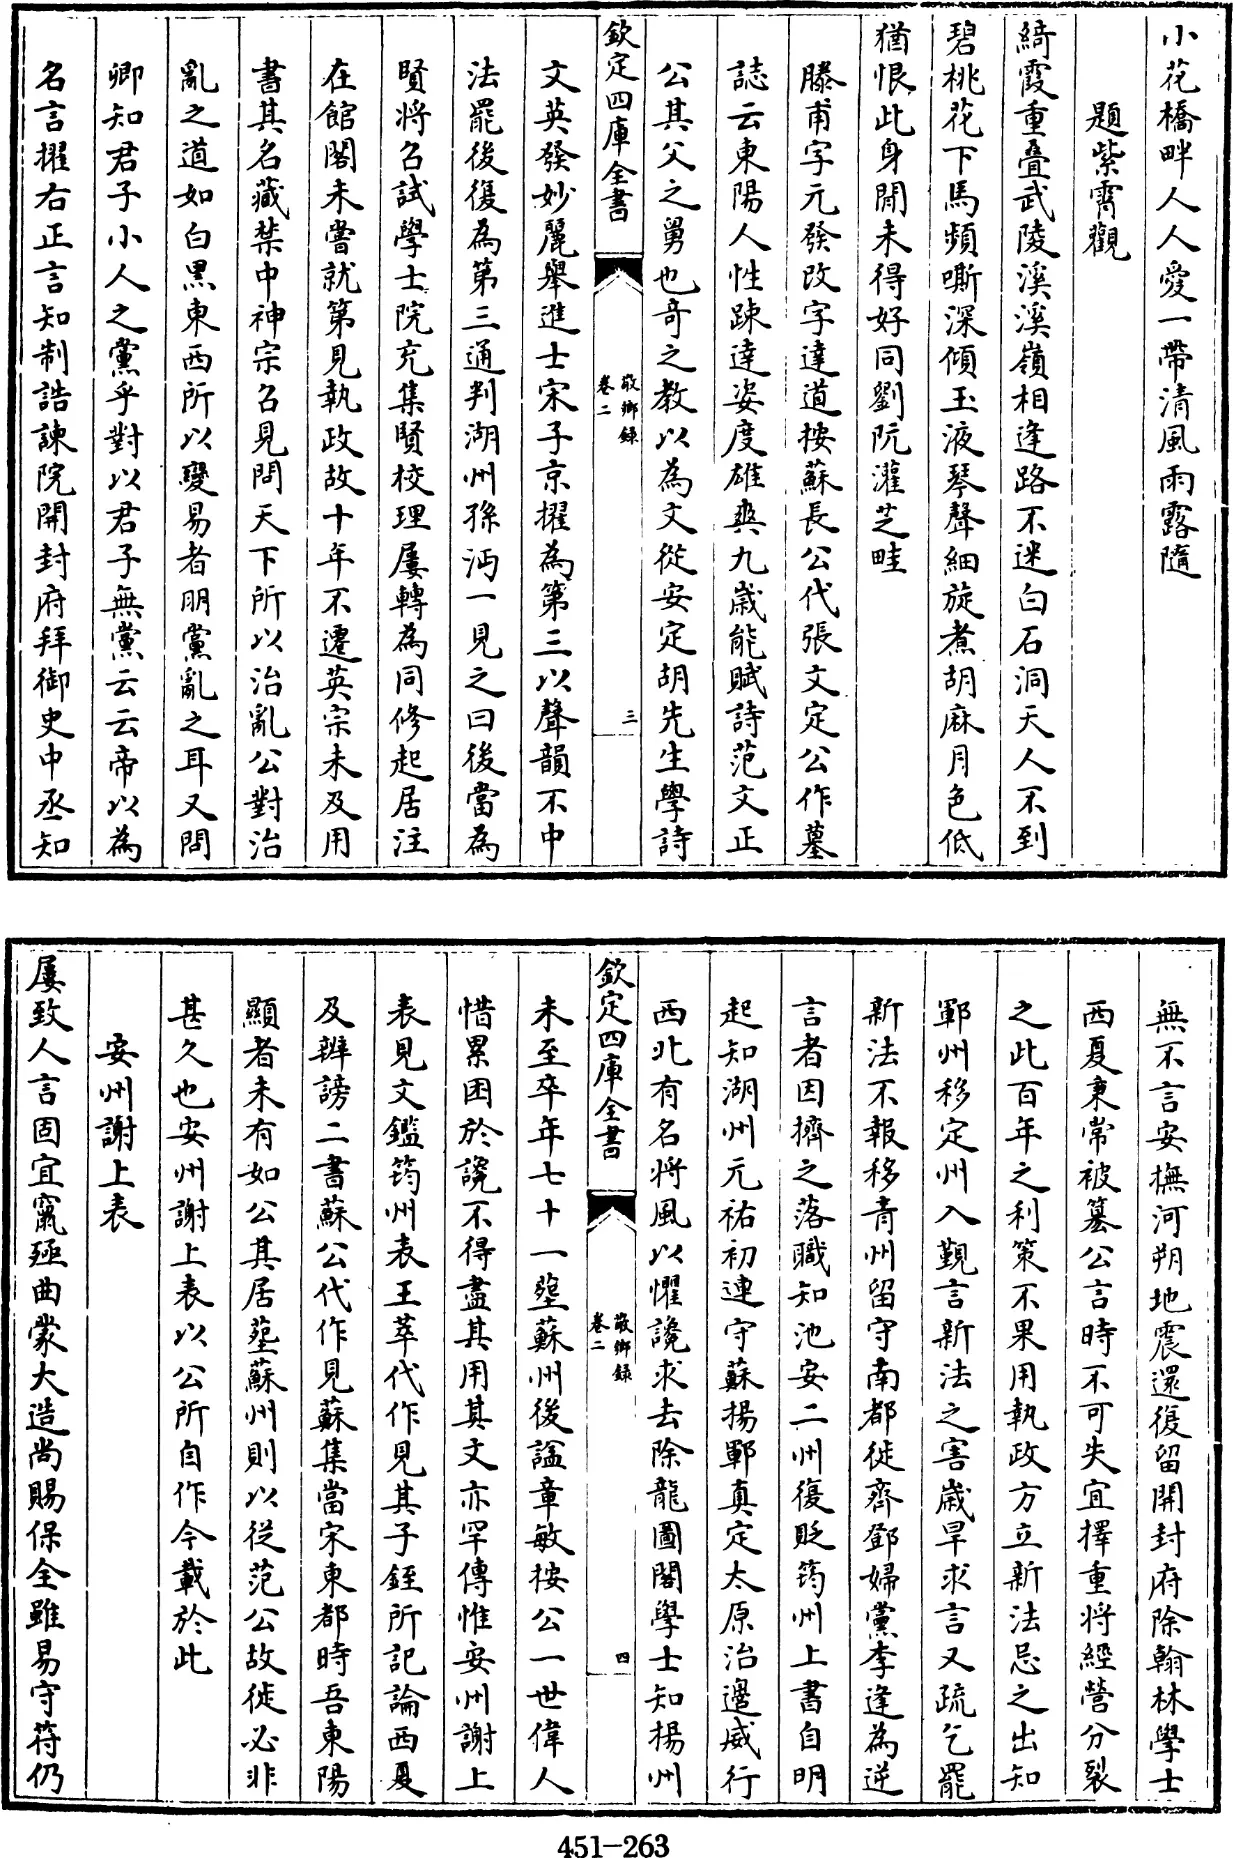 小花橋畔人人愛一帶清風雨露隨
題紫霄觀
綺霞重疊武陵溪溪嶺相逢路不迷白石洞天人不到
碧桃花下馬頻嘶深傾玉液琴聲細旋煮胡麻月色低
猶恨此身閒未得好同劉阮灌芝畦
滕甫字元發改字達道按蘇長公代張文定公作墓
誌云東陽人性踈達姿度雄爽九歲能賦詩范文正
公其父之舅也奇之教以為文從安定胡先生學詩
欽定四庫全書
敬鄉錄
卷二
三
文英發妙麗舉進士宋子京擢為第三以聲韻不中
法罷後復為第三通判湖州孫沔一見之曰後當為
賢將召試學士院充集賢校理屢轉為同修起居注
在館閣未嘗就第見執政故十年不遷英宗未及用
書其名藏禁中神宗召見問天下所以治亂公對治
亂之道如白黑東西所以變易者朋黨亂之耳又問
卿知君子小人之黨乎對以君子無黨云云帝以為
名言擢右正言知制誥諫院開封府拜御史中丞知
無不言安撫河朔地震還復留開封府除翰林學士
西夏秉常被篡公言時不可失宜擇重將經營分裂
之此百年之利策不果用執政方立新法忌之出知
鄆州移定州入覲言新法之害歲旱求言又疏乞罷
新法不報移青州留守南都徙齊鄧婦黨李逢為逆
言者因擠之落職知池安二州復貶筠州上書自明
起知湖州元祐初連守蘇揚鄆真定太原治邊威行
西北有名將風以懼讒求去除龍圖閣學士知揚州
欽定四庫全書
敬鄉錄
卷二
四
未至卒年七十一塟蘇州後諡章敏按公一世偉人
惜累困於讒不得盡其用其文亦罕傳惟安州謝上
表見文鑑筠州表王萃代作見其子銍所記論西夏
及辨謗二書蘇公代作見蘇集當宋東都時吾東陽
顯者未有如公其居塟蘇州則以從范公故徙必非
甚久也安州謝上表以公所自作今載於此
安州謝上表
屢致人言固宜竄殛曲蒙大造尚賜保全雖易守符仍
451-263